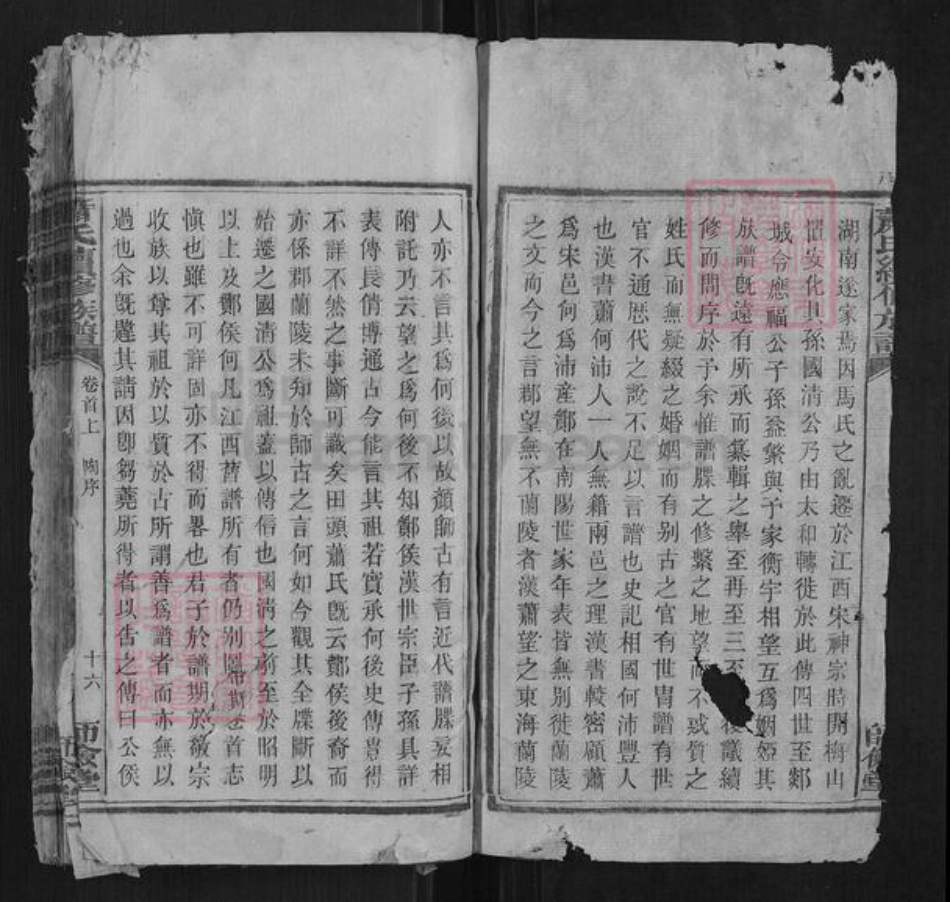 湖南遂家焉因馬氏之亂遷於江西宋神宗時開梅山
置安化其孫國清公乃由太和轉徙於此傳四世至鄰
城令應福公子孫益繁與予家衡宇相望互爲姻婭其
族譜旣遠有所承而纂輯之舉至再至三至後議續
修而問序於予余惟譜牒之修繫之地望而不惑質之
姓氏而無疑綴之婚姻而有别古之官有世胄譜有世
官不通歴代之說不足以言譜也史記相國何沛豐人
也漢書蕭何沛人一人無籍兩邑之理漢書較密顧蕭
爲宋邑何爲沛産酇在南陽世家年表皆無别徙蘭陵
之文而今之言郡望無不蘭陵者漢蕭望之東海蘭陵
人亦不言其爲何後以故顏師古有言近代譜牒妄相
附託乃云望之爲何後不知酇侯漢世宗臣子孫具詳
表傳長倩博通古今能言其祖若實承何後史傳豈得
不詳不然之事斷可識矣田頭蕭氏旣云酇侯後裔而
亦係郡蘭陵未知於師古之言何如今觀其全牒斷以
始遷之國清公爲祖蓋以傳信也國清之前至於昭明
以上及酇侯何凡江西舊譜所有者仍别卷首志
愼也雖不可詳固亦不得而畧也君子於譜期於敬宗
收族以尊其祖於以質於古所謂善爲譜者而亦無以
過也余旣韙其請因卽芻蕘所得者以告之傳曰公侯
蕭氏續修族譜
卷首上
陶序
十六
師儉堂